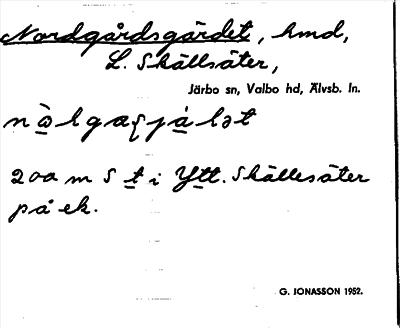 Nordgårdsgärdet, hmd,
L. Skällsäter,
Järbo sn, Valbo hd, Älvsb. ln.
200 m S t i Ytt. Skällesäter
på ek.
G. JONASSON 1952.